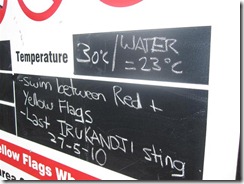 Temperature
30°c / WATER
= 23°c
=swim between Red +
Yellow Flags
-Last IRUKANDJI sting
27-5-10
ellow Flags Wh
area